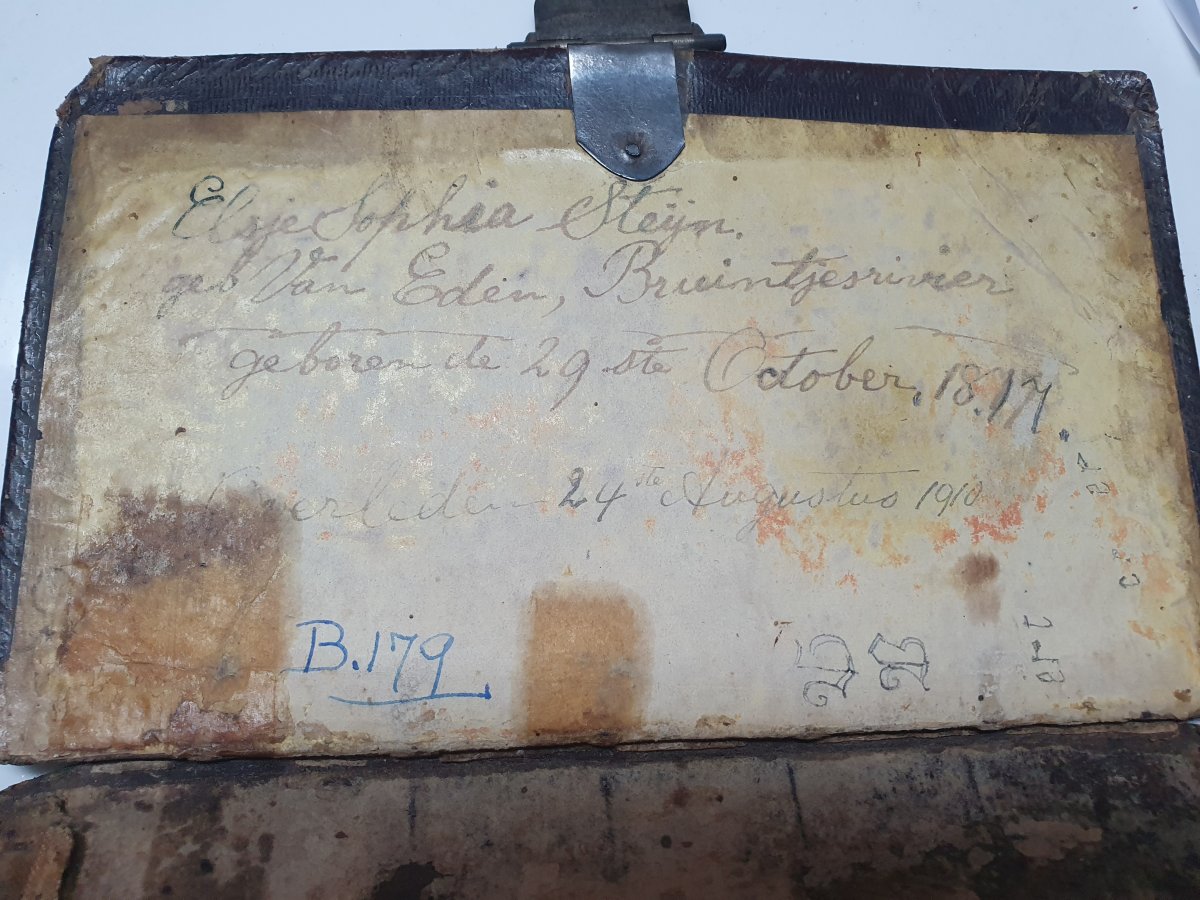 Elsje Sophia Steijn.
geb Van Eden, Bruintjesrivier
geboren de 29ste October, 18.17.
Overleden 24ste Augustus 1910
B.179